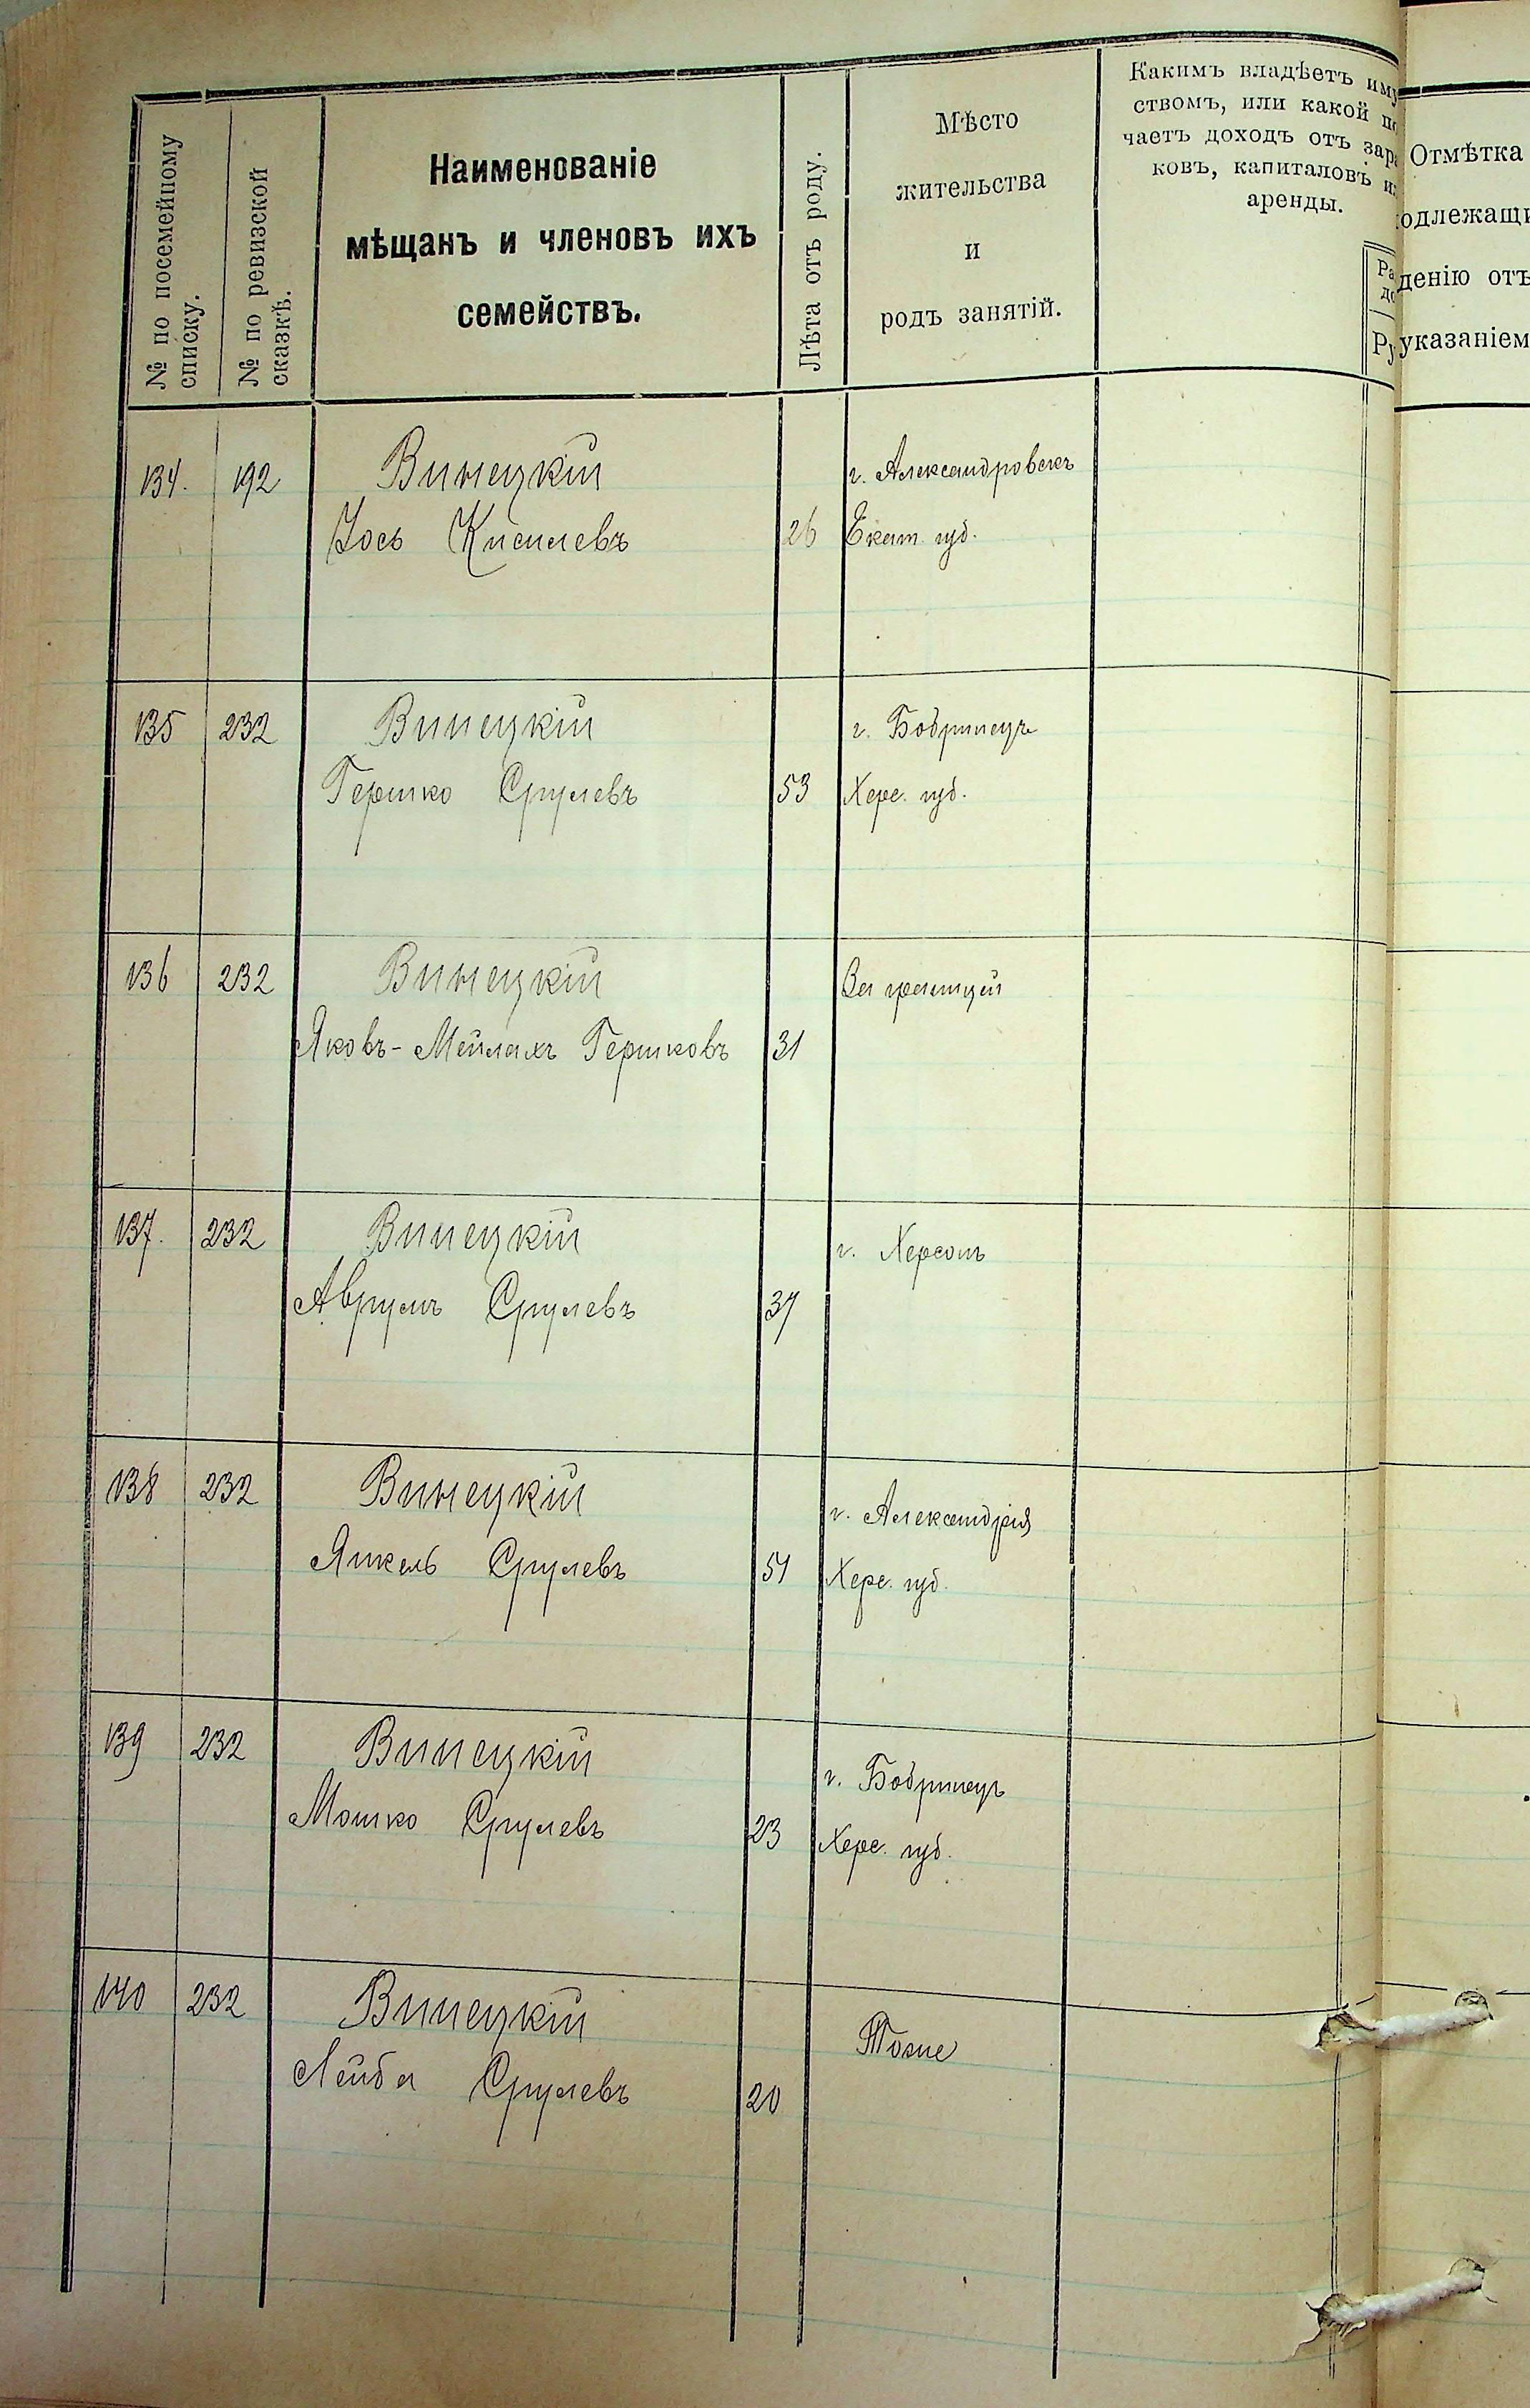 № по посемейному
списку.
№ по ревизской
сказкѣ.
Наименованіе
мѣщанъ и членовъ ихъ
семействъ.
Лѣта отъ роду.
Мѣсто
жительства
и
родъ занятій.
Какимъ владѣетъ иму
ствомъ, или какой по
чаетъ доходъ отъ зара
ковъ, капиталовъ и
аренды.
Ра
до
Ру
Отмѣтка
одлежащи
денію отъ
указаніем
134. 192 Винецкій г. Александровскъ
Іось 26 Екат. губ.
135 232 Винецкій г. Бобринецъ
Гершко Срулевъ 53 Херс. губ.
136 232 Винецкій За границей
Яковъ-Мейлахъ Гершковъ 31
137. 232 Винецкій г. Херсонъ
Аврумъ Срулевъ 37
138 232 Винецкій г. Александрія
Янкель Срулевъ 51 Херс. губ.
139 232 Винецкій г. Бобринецъ
Мошко Срулевъ 23 Херс. губ.
140 232 Винецкій Тоже
Лейба Срулевъ 20